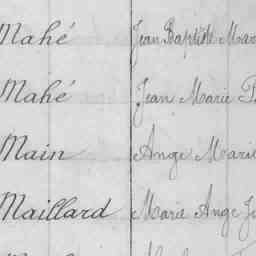 Mahé Jean Baptiste Mar
Mahé Jean Marie
Main Ange Marie
Maillard Marie Ange